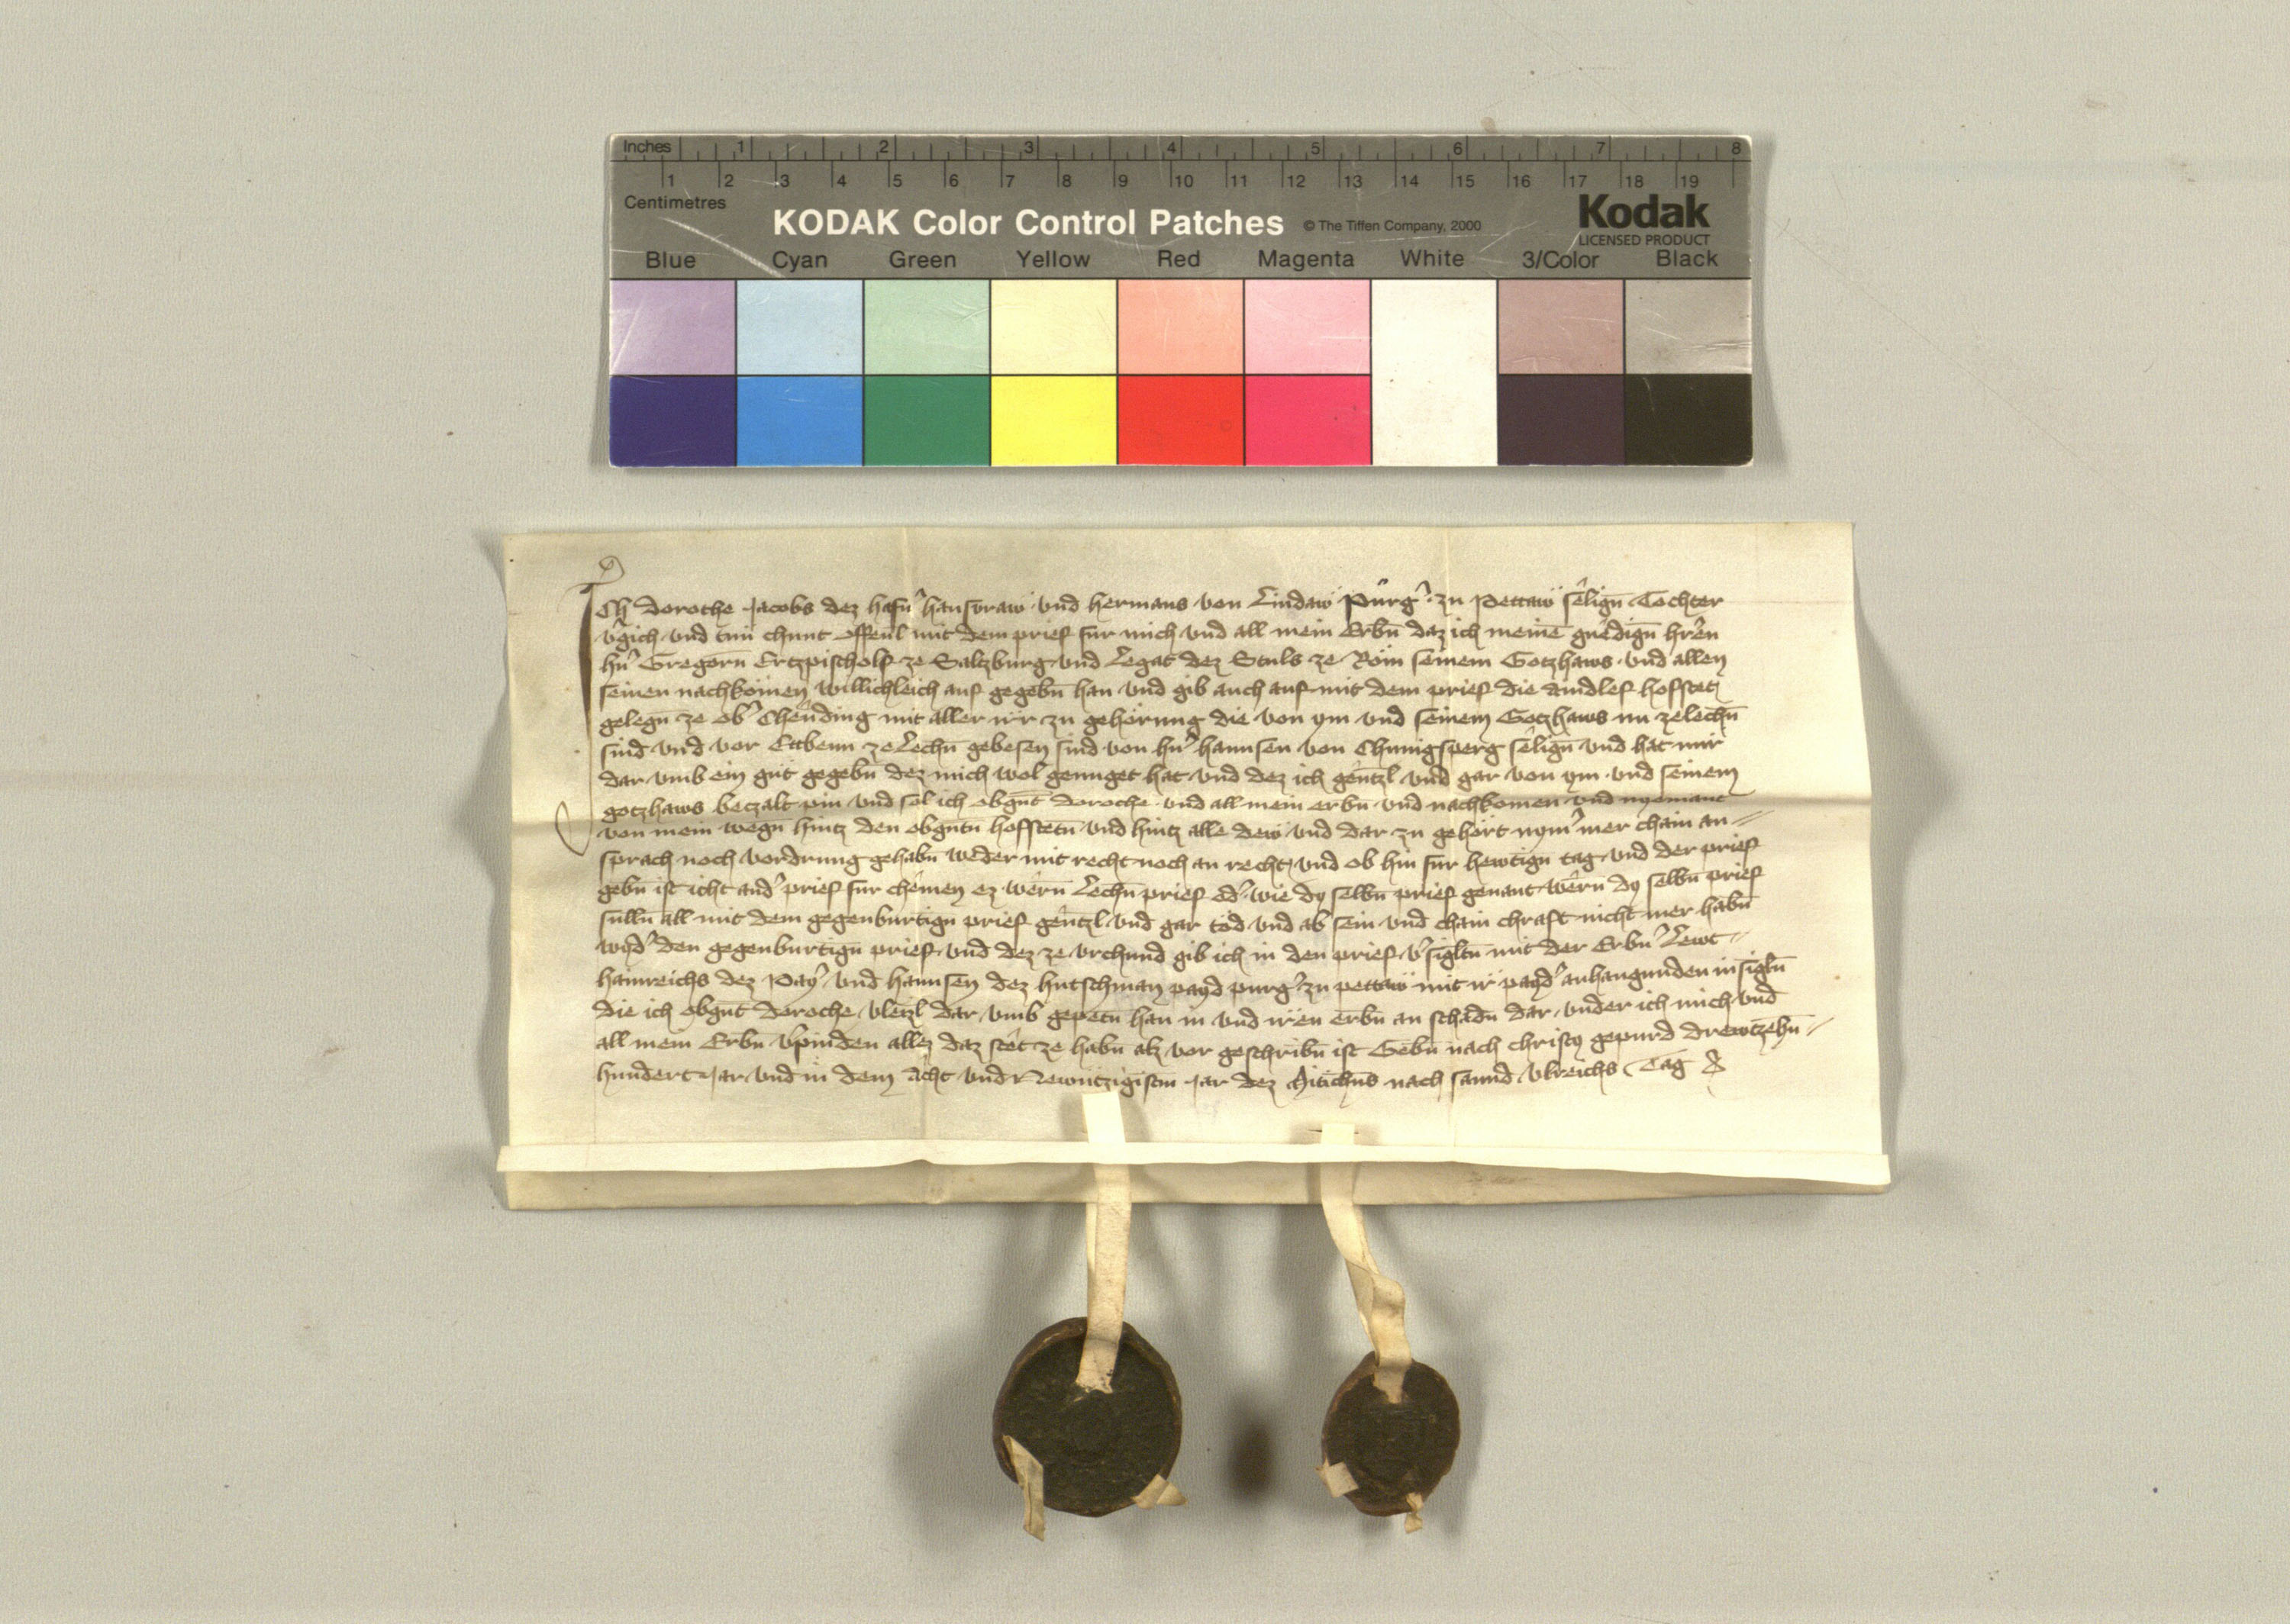 Inches 1 2 3 4 5 6 7 8
1 2 3 4 5 6 7 8 9 10 11 12 13 14 15 16 17 18 19
Centimetres
KODAK Color Control Patches © The Tiffen Company, 2000 Kodak
LICENSED PRODUCT
Blue Cyan Green Yellow Red Magenta White 3/Color Black
Ich Dorothe Jacobs dez hafn̄ hausvraw vnd hermans von Lindaw Purg̾ zu Pettaw sêlign̄ Tochter
v̾gich vnd tun chunt offenl̄ mit dem prief fur mich vnd all mein Erbn̄ daz ich meinē gnêdign̄ hr̄en
hn̄ Gregorn̄ Ertzpischolf ze Saltzburg vnd Legat dez Stuls ze Rom seinem Gotzhaws vnd allen
seinen nachkomen willichleich auf gegebn̄ han vnd gib auch auf mit dem prief die aindlef hofstet
gelegn̄ ze ob̾ Chênding mit aller ir̄ zu gehörung die von ym vnd seinem Gotzhaws nu ze lechn̄
sind vnd vor Ettbenn ze Lechn̄ gebesen sind von hn̄ hannsen von Chunigsperg sêlign̄ vnd hat mir
dar vmb ein gut gegebn̄ dez mich wol genuget hat vnd dez ich gêntzl̄ vnd gar von ym vnd seinem
gotzhaws betzalt pin vnd sol ich obgn̄t Dorothe vnd all mein erbn̄ vnd nachkomen vnd nyemant
von mein wegn̄ hintz den obgn̄tn̄ hofstetn̄ vnd hintz alle dew vnd dar zu gehört nym̄mer chain an
sprach noch vordrung gehabn̄ weder mit recht noch an recht vnd ob hin fur hewtign̄ tag vnd der prief
gebn̄ ist icht and̾ prief fur chêmen ez wêrn̄ Lechn̄ prief od̾ wie dy selbn̄ prief genant wêrn̄ dy selbn̄ prief
sulln̄ all mit dem gegenburtign̄ prief gêntzl̄ vnd gar tod vnd ab sein vnd chain chraft nicht mer habn̄
wyd̾ den gegenburtign̄ prief vnd dez ze vrchund gib ich in den prief v̾sigltn̄ mit der Erbn̄ Lewt
hainreichs dez Pay̾ vnd hannsen dez hutschman payd purg̾ zu pettaw mit ir̄ payd̾ anhangunden insigln̄
die ich obgn̄t Dorothe vletzl̄ dar vmb gepetn̄ han in vnd iren erbn̄ an schadn̄ dar vnder ich mich vnd
all mein Erbn̄ v̾pinden allez daz stêt ze habn̄ alz vor geschribn̄ ist Gebn̄ nach christy gepurd drewtzehn̄
hundert Jar vnd in dem Acht vnd Newntzigistm̄ Jar dez Mitichn̄s nach sannd vlreichs Tag